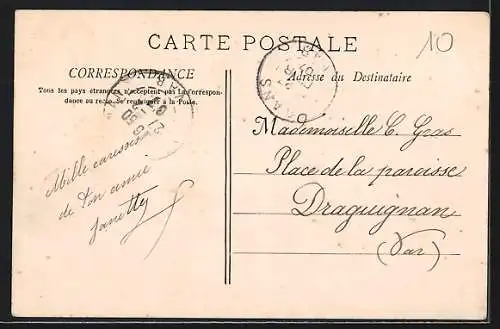 10
CARTE POSTALE
CORRESPONDANCE
Tous les pays étrangers n'acceptent pas la correspon-
dance au recto. Se renseigner à la Poste.
Adresse du Destinataire
Mille caresses
de ton amie
Janetty
Mademoiselle C. Gras
Place de la paroisse
Draguignan
(Var)